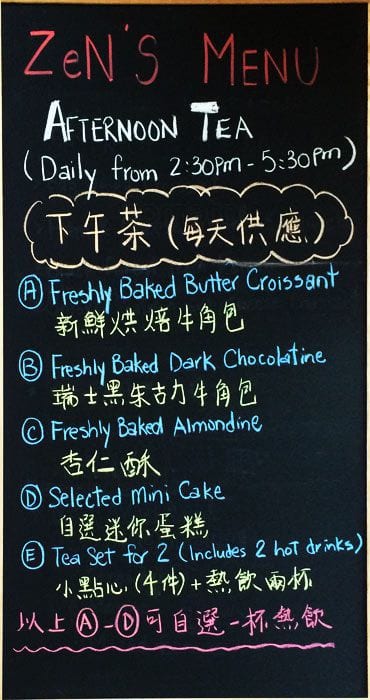 ZeN'S MENU
AFTERNOON TEA
(Daily from 2:30pm - 5:30pm)
下午茶 (每天供應)
Ⓐ Freshly Baked Butter Croissant
新鮮烘焙牛角包
Ⓑ Freshly Baked Dark Chocolatine
瑞士黑朱古力牛角包
Ⓒ Freshly Baked Almondine
杏仁酥
Ⓓ Selected Mini Cake
自選迷你蛋糕
Ⓔ Tea Set for 2 (Includes 2 hot drinks)
小點心 (4件) + 熱飲兩杯
以上 Ⓐ - Ⓓ 可自選一杯熱飲